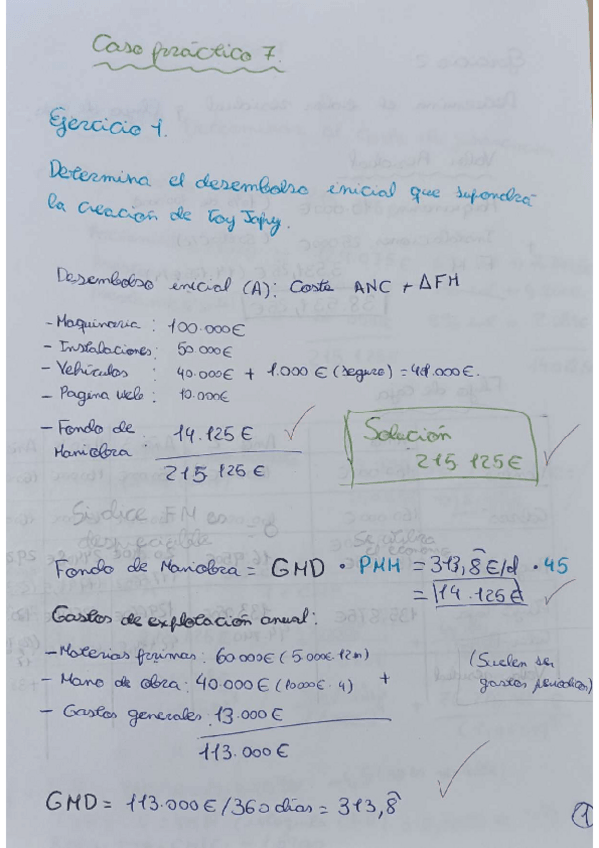 Caso práctico 7.
Ejercicio 1.
Determina el desembolso inicial que supondrá
la creación de Toy Japy.
Desembolso inicial (A): Coste ANC + ΔFM
- Maquinaria : 100.000€
- Instalaciones: 50 000€
- Vehículos : 40.000€ + 1.000 € (seguro) = 41.000€.
- Pagina web : 10.000€
- Fondo de Maniobra 14.125€
215 125€
Solución
215 125€
Si dice FM es = 0
despreciable
Se utiliza
el económico
Fondo de Maniobra = GMD · PMM = 313,8̂ €/d · 45
= 14.125€
Gastos de explotación anual:
- Materias primas: 60 000€ (5.000€·12m)
- Mano de obra: 40.000€ (10000€·4) +
- Gastos generales: 13.000€
113.000€
(Suelen ser
gastos periódicos)
GMD = 113.000€/360 días = 313,8̂
1